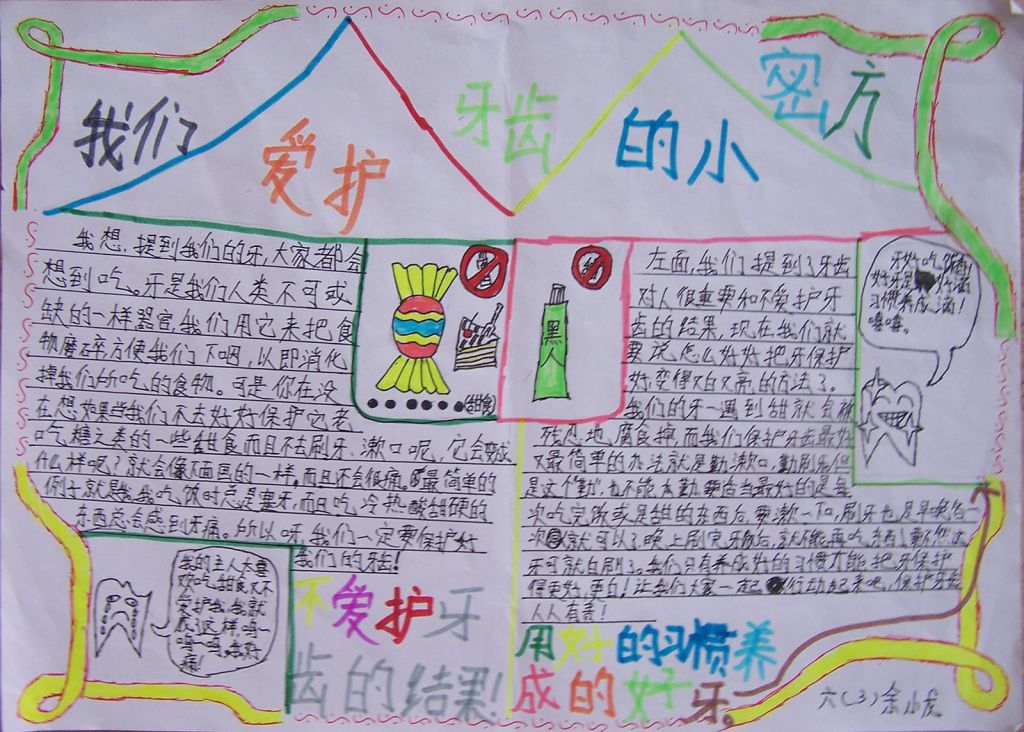 我们爱护牙齿的小密方
我想,提到我们的牙,大家都会
想到吃。牙是我们人类不可或
缺的一样器官,我们用它来把食
物磨碎,方便我们下咽,以即消化
掉我们所吃的食物。可是你在没
在想如果当我们不去好好保护它,老
吃糖之类的一些甜食而且不去刷牙、漱口呢,它会变成
什么样呢?就会像下面画的一样。而且还会很痛。最简单的
例子就是我,我吃饭时总是塞牙,而且吃冷热酸甜硬的
东西总会感到牙痛。所以呀,我们一定要保护好
我们的牙齿!
(甜食)
黑人
我的主人太喜
欢吃甜食又不
爱护我,我就
成了这样,呜一
呜一呜,我好
痛!
不爱护牙
齿的结果!
左面,我们提到了牙齿
对人很重要和不爱护牙
齿的结果,现在我们就
要说怎么好好把牙保护
好变得又白又亮的方法了。
我们的牙一遇到甜就会被
残忍地腐食掉,而我们保护牙齿最好
又最简单的办法就是勤漱口,勤刷牙,但
是这个勤,也不能太勤要恰当最好的是每
次吃完饭或是甜的东西后,要漱一下口,刷牙也是早晚各一
次就可以了晚上刷完牙物后,就不能再吃东西了要不然这
牙可就白刷了。我们只有养成好的习惯才能把牙保护
得更好,更白!让我们大家一起行动起来吧,保护牙齿
人人有责!
牙好吃饭香
好牙是好活
习惯养成滴!
嘻嘻。
用好的习惯养
成的好牙。
六(3)余小虎